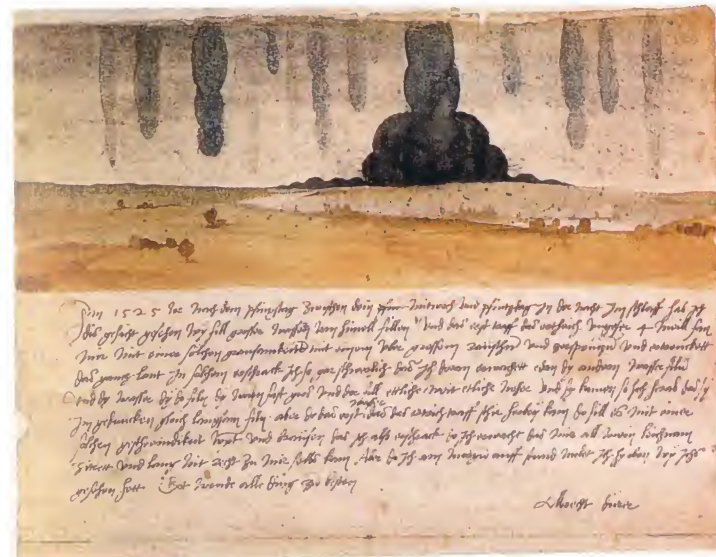 Im 1525 Jor nach dem pfinxstag zwischen dem mitwoch und pfintzdag in der nacht im schlaff hab ich
dis gesicht gesehen wy fill grosser wassern vom himell fillen Und das erst traff das erthrich ungefer 4 meill fan
mir mit einer solchen grausamkeitt mit einem uber grossem raüschn und zersprützn und ertrenckett
das gantz lant In solchem erschrack ich so gar schwerlich das ich doran erwachett edan dy andern wasser filn
Und dy wasser dy do filn dy warn fast gros und der fill ettliche weit etliche neher und sy kamen so hoch herab das sy
im gedancken gleich langsam filn aber do das erst wasser das das erthrich traff schir herbey kam do fill es mit einer
solchen geschwindikeit wynt und braüsen das ich also erschrack do ich erwacht das mir all mein leichnam
zitrett und lang nit recht zu mir selbs kam Aber do ich am morgn auff stund molet ich hy oben wy ichs
gesehen hett Got wende alle ding zu besten
Albrecht dürer